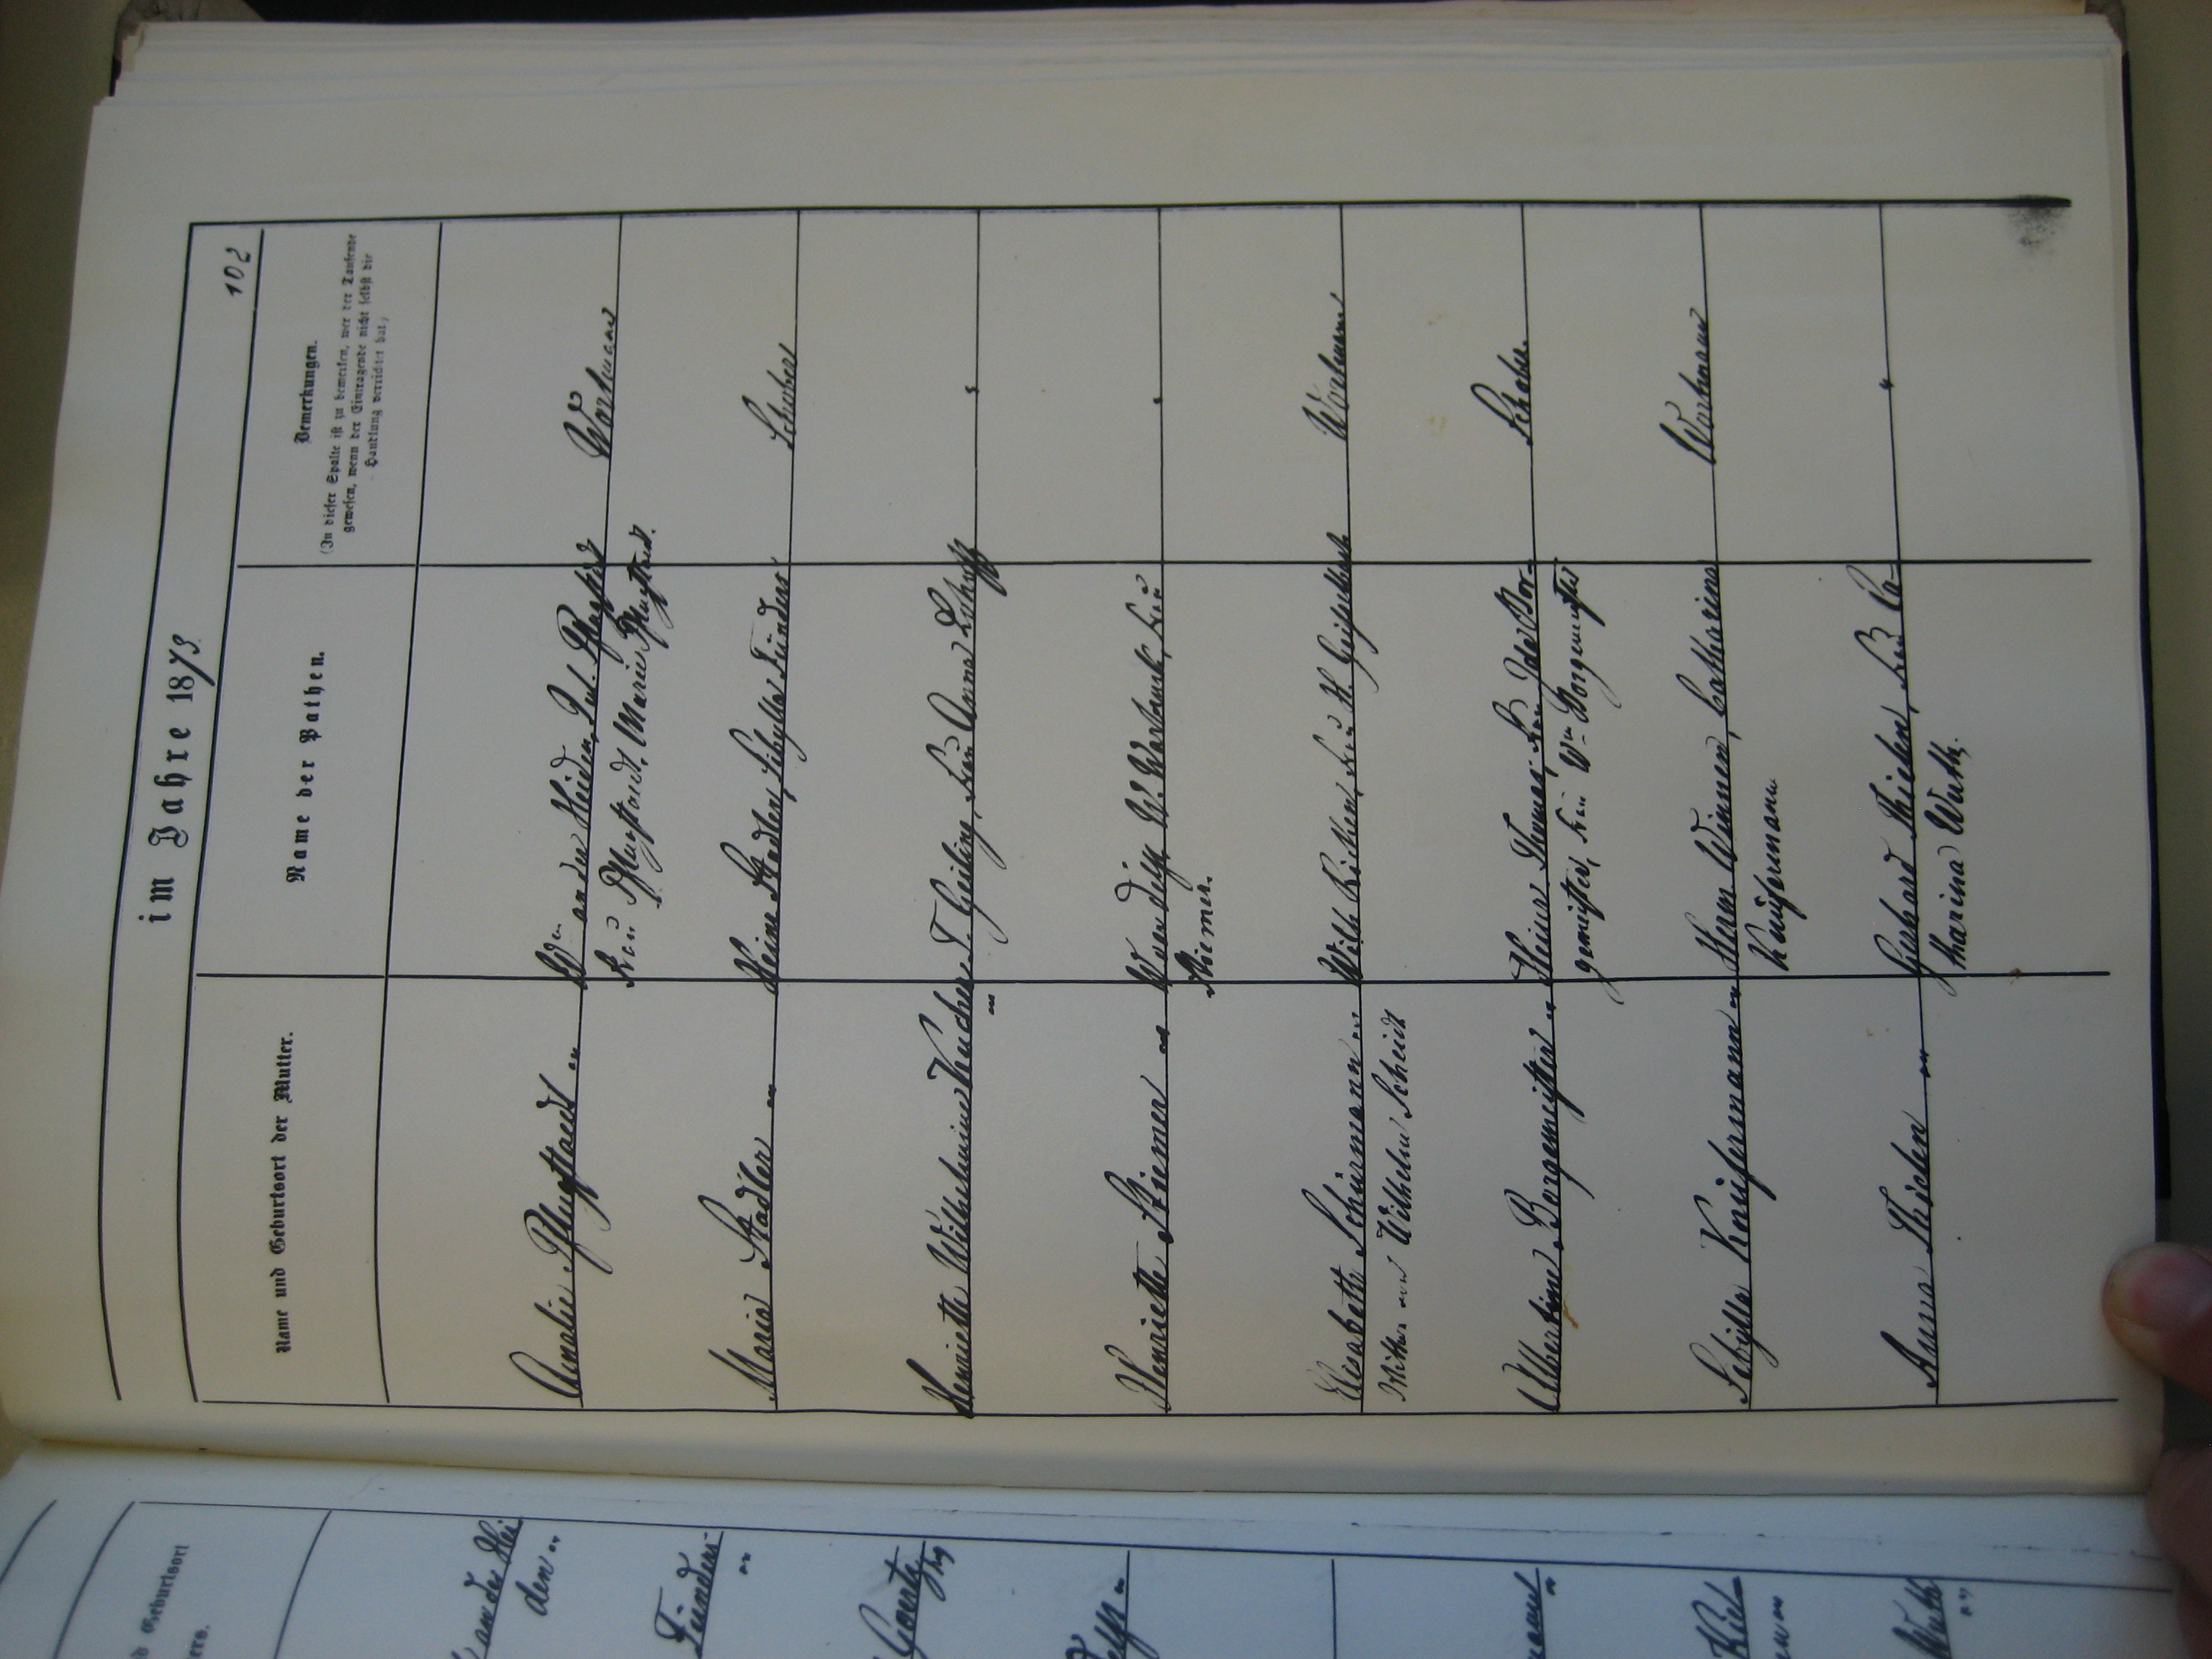 im Jahre 1873
102
Name und Geburtsort der Mutter.
Name der Pathen.
Bemerkungen.
(In dieser Spalte ist zu bemerken, wer der Taufende
gewesen, wenn der Eintragende nicht selbst die
Handlung verrichtet hat.)
Amalie Pflugstaedt "
Wm an der Heiden, Jul.
Frau Pflugstaedt, Marie Pflugstaedt.
Wortmann
Maria Stadler "
Heinr. Stadler, Sibylla Fünders
Schober
Henriette Wilhelmine Kucher "
T. Geiling, Frau Anna
"
Henriette Stiemer "
W. Wortmann, Frau
Stiemer.
"
Elisabeth Schürmann "
Wittwe von Wilhelm Scheidt
Wilh. Ricken, Frau H.
Wortmann
Albertine Borgemeister "
Heinr. Frau Ida Bor-
gemeister, Frau Wm Borgemeister
Schober.
Sibylla Knüfermann "
Herm Winnen, Catharina
Knüfermann
Wortmann
Anna Thielen "
Gerhard Thielen, Frau Ca-
tharina Wuth.
"
d Geburtsort
ers.
an der Hei
den "
Fünders
"
Goertz
"
"
Kiel
Wuth
"